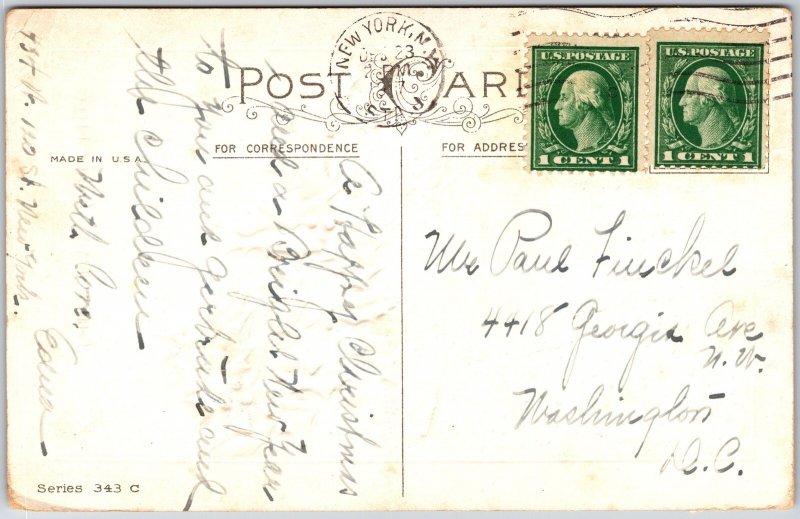 POST CARD
NEW YORK, N.Y.
DEC 23
PM
U.S. POSTAGE
1 CENT 1
U.S. POSTAGE
1 CENT 1
FOR CORRESPONDENCE
FOR ADDRESS
MADE IN U.S.A.
A Happy Christmas
and a Bright New Year
to you and Gertrude and
the children
With Love,
Edna
St. New York.
Mr Paul Finckel
4418 Georgia Ave
N. W.
Washington
D.C.
Series 343 C